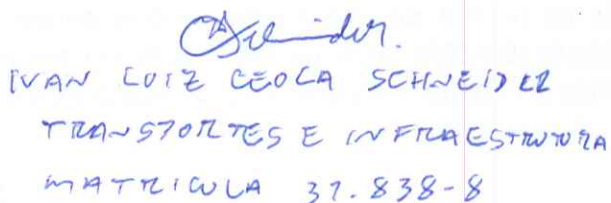 Schneider.
IVAN LUIZ CEOLA SCHNEIDER
TRANSPORTES E INFRAESTRUTURA
MATRICULA 37.838-8